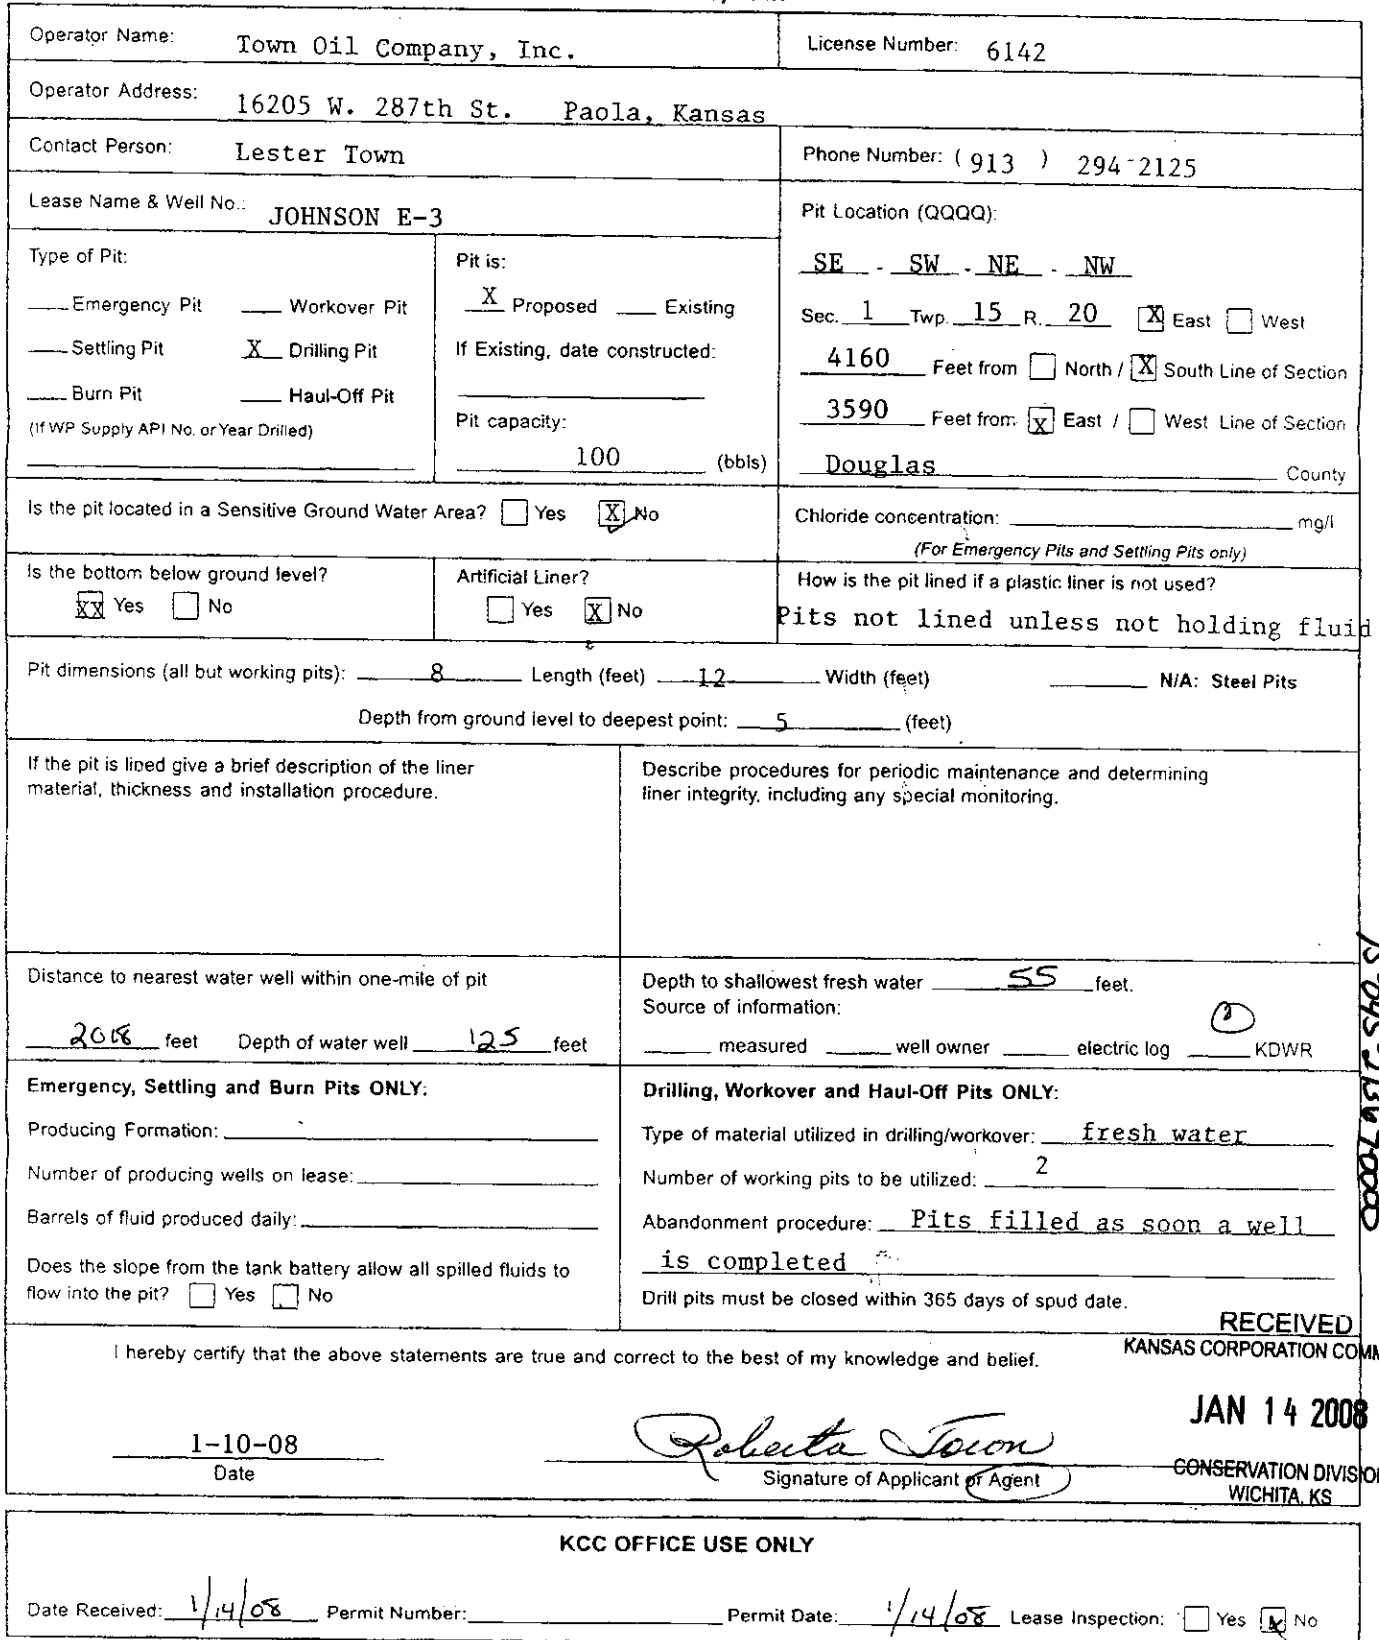 Operator Name: Town Oil Company, Inc.
License Number: 6142
Operator Address: 16205 W. 287th St. Paola, Kansas
Contact Person: Lester Town
Phone Number: ( 913 ) 294-2125
Lease Name & Well No.: JOHNSON E-3
Pit Location (QQQQ):
SE - SW - NE - NW
Sec. 1 Twp. 15 R. 20 X East West
4160 Feet from North / X South Line of Section
3590 Feet from X East / West Line of Section
Douglas County
Type of Pit:
Emergency Pit Workover Pit
Settling Pit X Drilling Pit
Burn Pit Haul-Off Pit
(If WP Supply API No. or Year Drilled)
Pit is:
X Proposed Existing
If Existing, date constructed:
Pit capacity:
100 (bbls)
Is the pit located in a Sensitive Ground Water Area? Yes X No
Chloride concentration: mg/l
(For Emergency Pits and Settling Pits only)
Is the bottom below ground level?
XX Yes No
Artificial Liner?
Yes X No
How is the pit lined if a plastic liner is not used?
Pits not lined unless not holding fluid
Pit dimensions (all but working pits): 8 Length (feet) 12 Width (feet) N/A: Steel Pits
Depth from ground level to deepest point: 5 (feet)
If the pit is lined give a brief description of the liner
material, thickness and installation procedure.
Describe procedures for periodic maintenance and determining
liner integrity, including any special monitoring.
Distance to nearest water well within one-mile of pit
feet Depth of water well 125 feet
Depth to shallowest fresh water 55 feet.
Source of information:
measured well owner electric log KDWR
Emergency, Settling and Burn Pits ONLY:
Producing Formation:
Number of producing wells on lease:
Barrels of fluid produced daily:
Does the slope from the tank battery allow all spilled fluids to
flow into the pit? Yes No
Drilling, Workover and Haul-Off Pits ONLY:
Type of material utilized in drilling/workover: fresh water
Number of working pits to be utilized: 2
Abandonment procedure: Pits filled as soon a well
is completed
Drill pits must be closed within 365 days of spud date.
I hereby certify that the above statements are true and correct to the best of my knowledge and belief.
RECEIVED
KANSAS CORPORATION COMM
JAN 14 2008
CONSERVATION DIVISIO
WICHITA, KS
1-10-08
Date
Roberta Town
Signature of Applicant or Agent
KCC OFFICE USE ONLY
Date Received: 1/14/08 Permit Number: Permit Date: 1/14/08 Lease Inspection: Yes X No